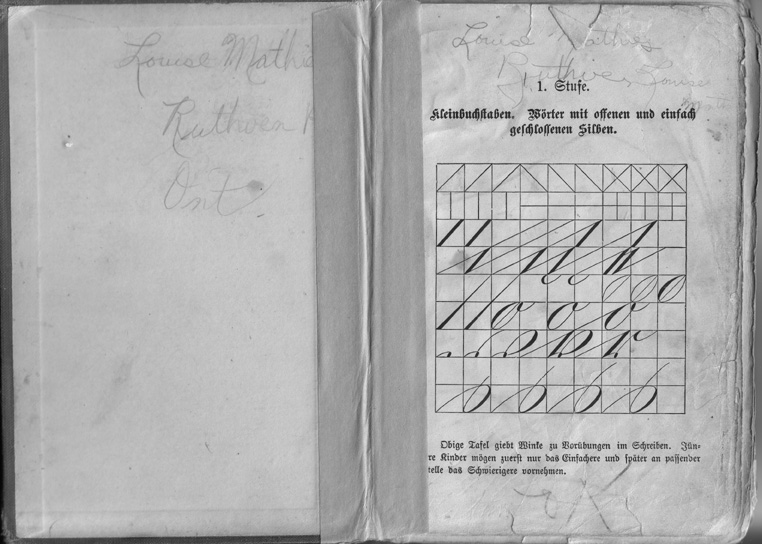 Louise Mathie
Ruthven
Ont.
Louise Mathes
Ruthven Louise
1. Stufe.
Kleinbuchstaben. Wörter mit offenen und einfach
geschlossenen Silben.
Obige Tafel giebt Winke zu Vorübungen im Schreiben. Jün-
re Kinder mögen zuerst nur das Einfachere und später an passender
telle das Schwierigere vornehmen.